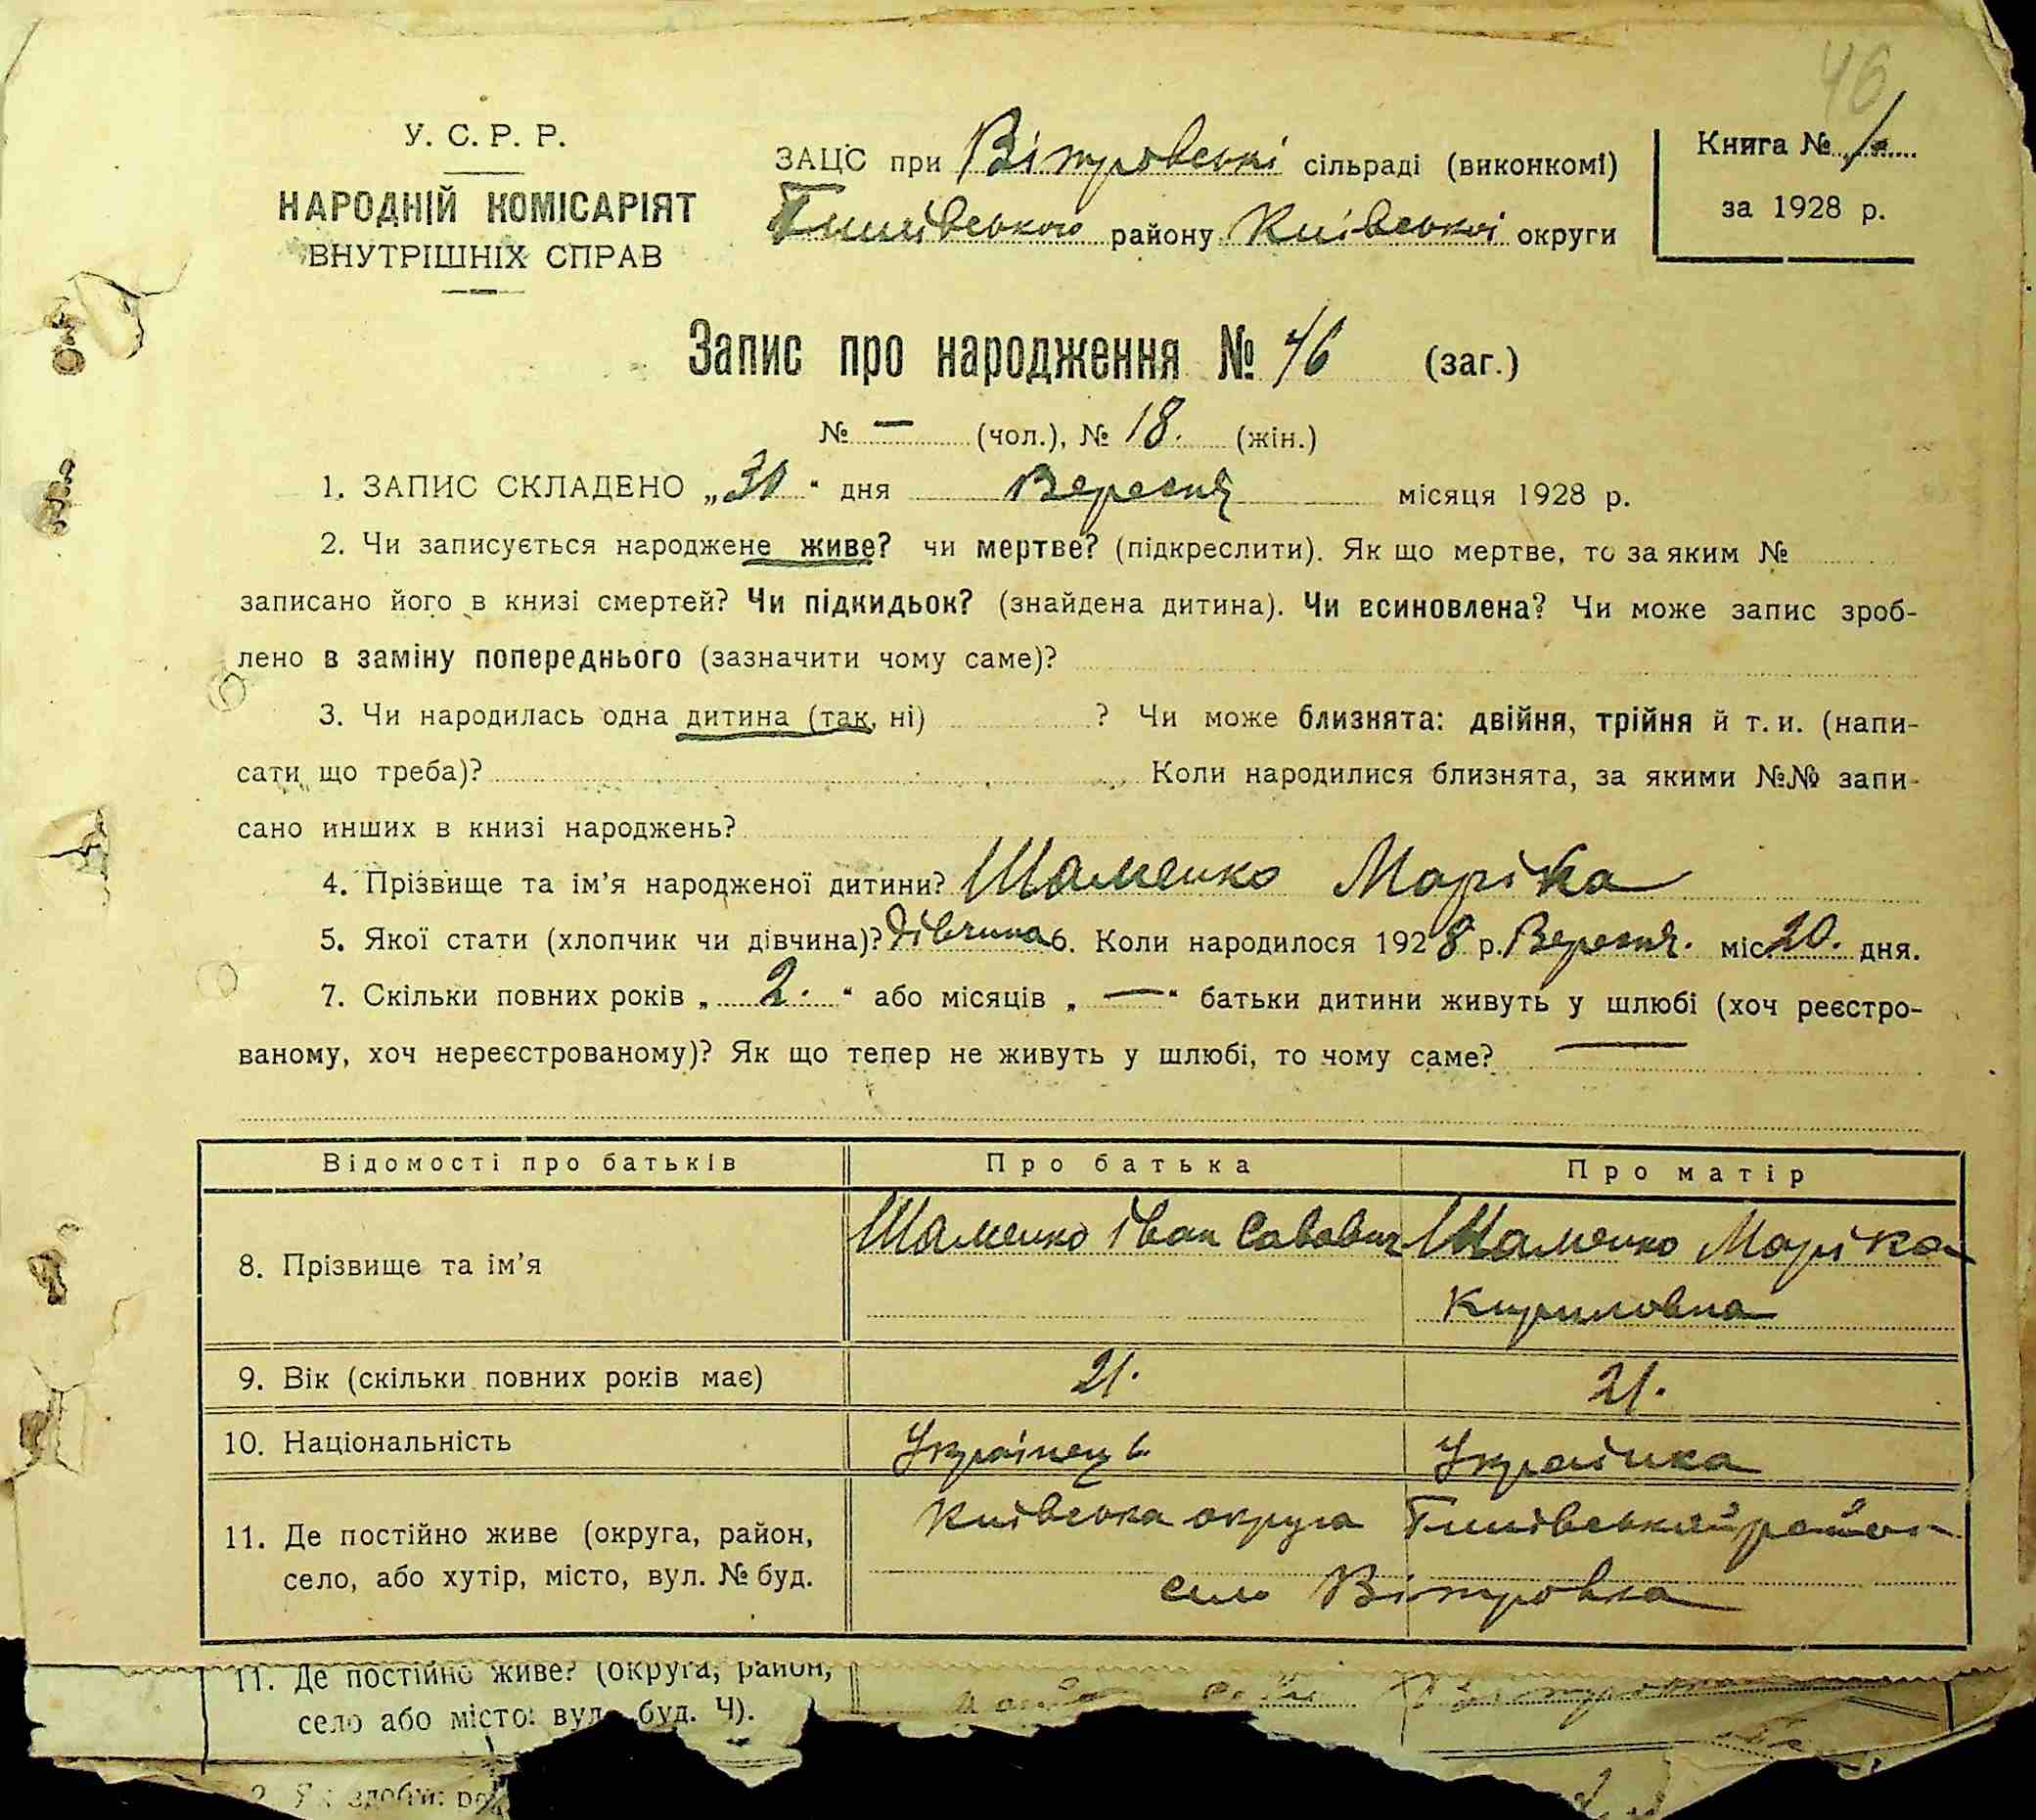 46
У. С. Р. Р.
НАРОДНІЙ КОМІСАРІЯТ
ВНУТРІШНІХ СПРАВ
ЗАЦС при Вітровські сільраді (виконкомі)
району Київської округи
Книга № 1
за 1928 р.
Запис про народження № 46 (заг.)
№ — (чол.), № 18. (жін.)
1. ЗАПИС СКЛАДЕНО „30“ дня Вересня місяця 1928 р.
2. Чи записується народжене живе? чи мертве? (підкреслити). Як що мертве, то за яким №
записано його в книзі смертей? Чи підкидьок? (знайдена дитина). Чи всиновлена? Чи може запис зроб-
лено в заміну попереднього (зазначити чому саме)?
3. Чи народилась одна дитина (так, ні) ? Чи може близнята: двійня, трійня й т. и. (напи-
сати, що треба)? Коли народилися близнята, за якими №№ запи-
сано инших в книзі народжень?
4. Прізвище та ім’я народженої дитини? Шаменко Маріка
5. Якої стати (хлопчик чи дівчина)? Дівчина 6. Коли народилося 1928 р. Вересня. міс. 20. дня.
7. Скільки повних років „ 2. “ або місяців „ — “ батьки дитини живуть у шлюбі (хоч реєстро-
ваному, хоч нереєстрованому)? Як що тепер не живуть у шлюбі, то чому саме? —
Відомості про батьків Про батька Про матір
8. Прізвище та ім’я Шаменко Іван Савович Шаменко Маріка
Кириловна
9. Вік (скільки повних років має) 21. 21.
10. Національність Українець Українка
11. Де постійно живе (округа, район, Київська округа район
село, або хутір, місто, вул. № буд. село Вітровка
11. Де постійно живе? (округа, район,
село або місто: вул. буд. Ч).